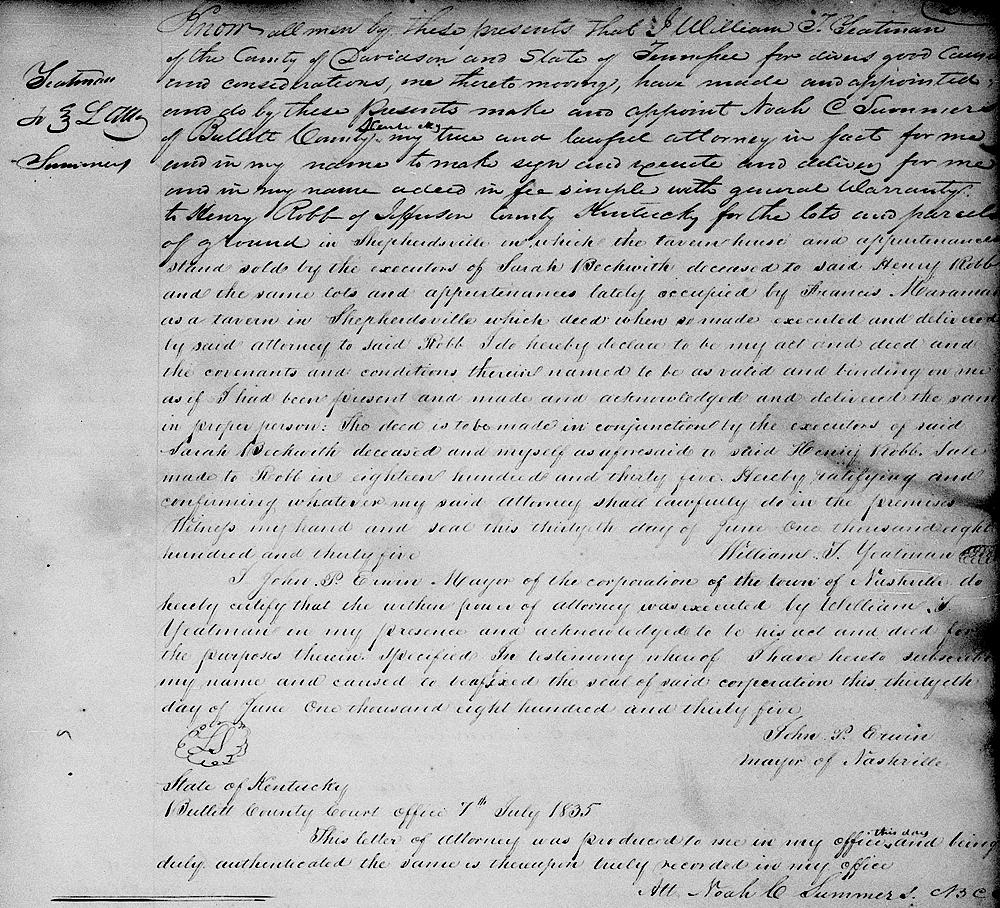 Know all men by these presents that I William T. Yeatman
of the County of Davidson and State of Tennessee for divers good Caus
and considerations, me thereto moving, have made and appointed
Yeatman
to L Atty
Summers
and do by these presents make and appoint Noah C Summers
of Bullitt County Kentucky my true and lawful attorney in fact for me
and in my name to make sign and execute and deliver for me
and in my name a deed in fee simple with general Warranty.
to Henry Robb of Jefferson County Kentucky for the lots and parcels
of ground in Shepherdsville on which the tavern house and appurtenances
stand sold by the executors of Sarah Beckwith deceased to said Henry Robb
and the same lots and appurtenances lately occupied by Frances
as a tavern in Shepherdsville which deed when so made executed and delivered
by said attorney to said Robb I do hereby declare to be my act and deed and
the covenants and conditions therein named to be as valid and binding on me
as if I had been present and made and acknowledged and delivered the sam
in proper person: The deed is to be made in conjunction by the executors of said
Sarah Beckwith deceased and myself as aforesaid to said Henry Robb. Sale
made to Robb in eighteen hundred and thirty five. Hereby ratifying and
confirming whatever my said attorney shall lawfully do in the premises
Witness my hand and seal this thirtyth day of June One thousand eight
hundred and thirty five William. T. Yeatman
I John. P. Erwin Mayor of the corporation of the town of Nashville do
hereby certify that the within power of attorney was executed by William. T.
Yeatman in my presence and acknowledged to be his act and deed for
the purposes therein. Specified In testimony whereof I have hereto subscribe
my name and caused to be afixed the seal of said corporation this thirtyeth
day of June One thousand eight hundred and thirty five
John. P. Erwin
mayor of Nashville
LS
State of Kentucky
Bullitt County Court office 7th July 1835
This letter of attorney was produced to me in my office this day and being
duly. authenticated the same is thereupon truly recorded in my office
Att. Noah C Summers. C